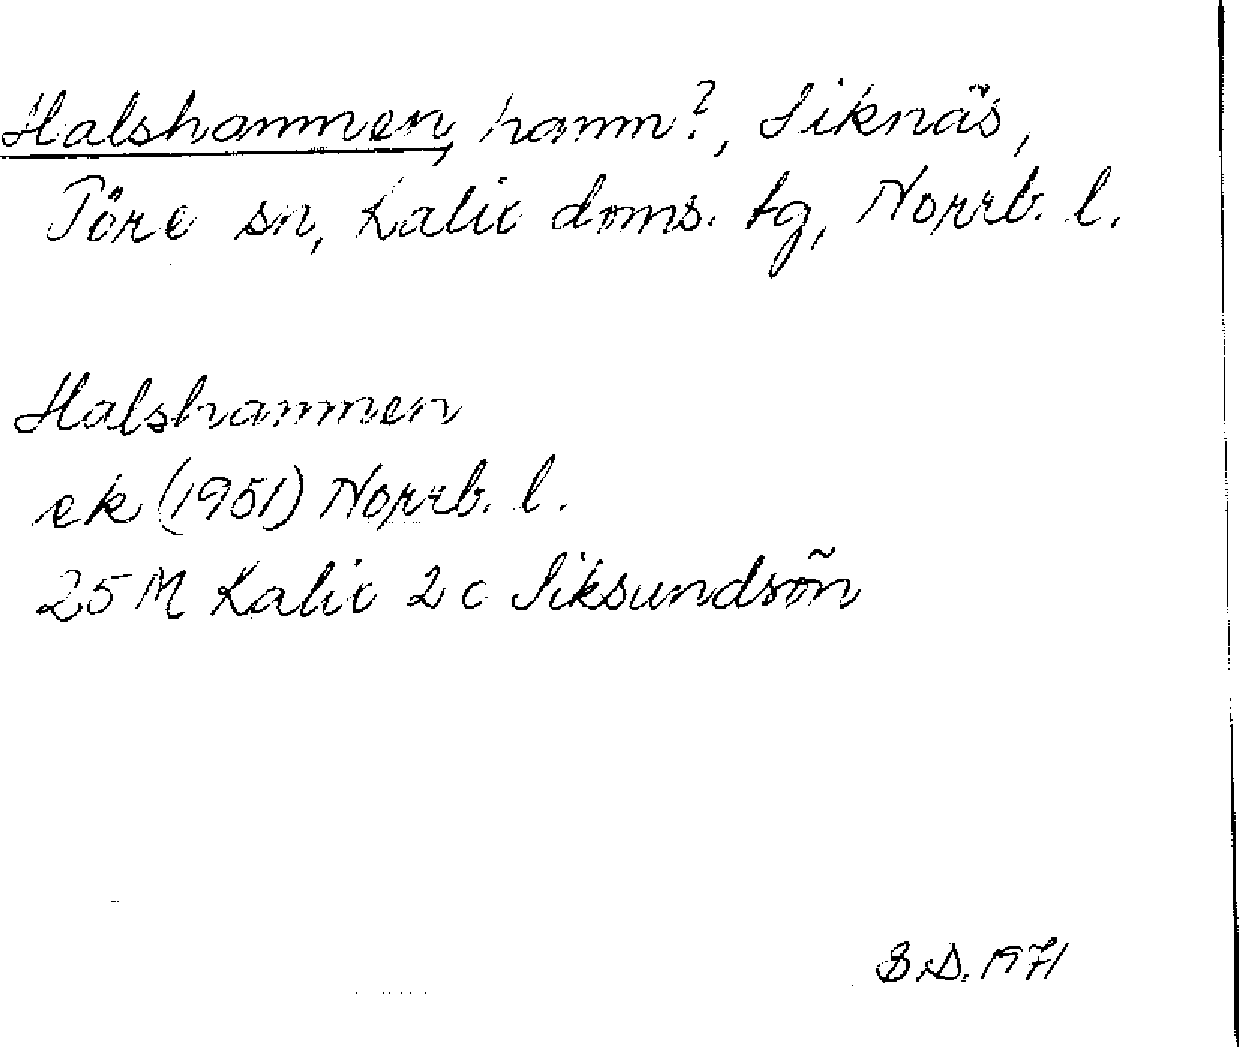 Halshammen, hamm?, Siknäs,
Töre sn, Kalix doms. tg, Norrb. l.
Halshammen
ek (1951) Norrb. l.
25 M Kalix 2 c Siksundsön
B.D. 1971